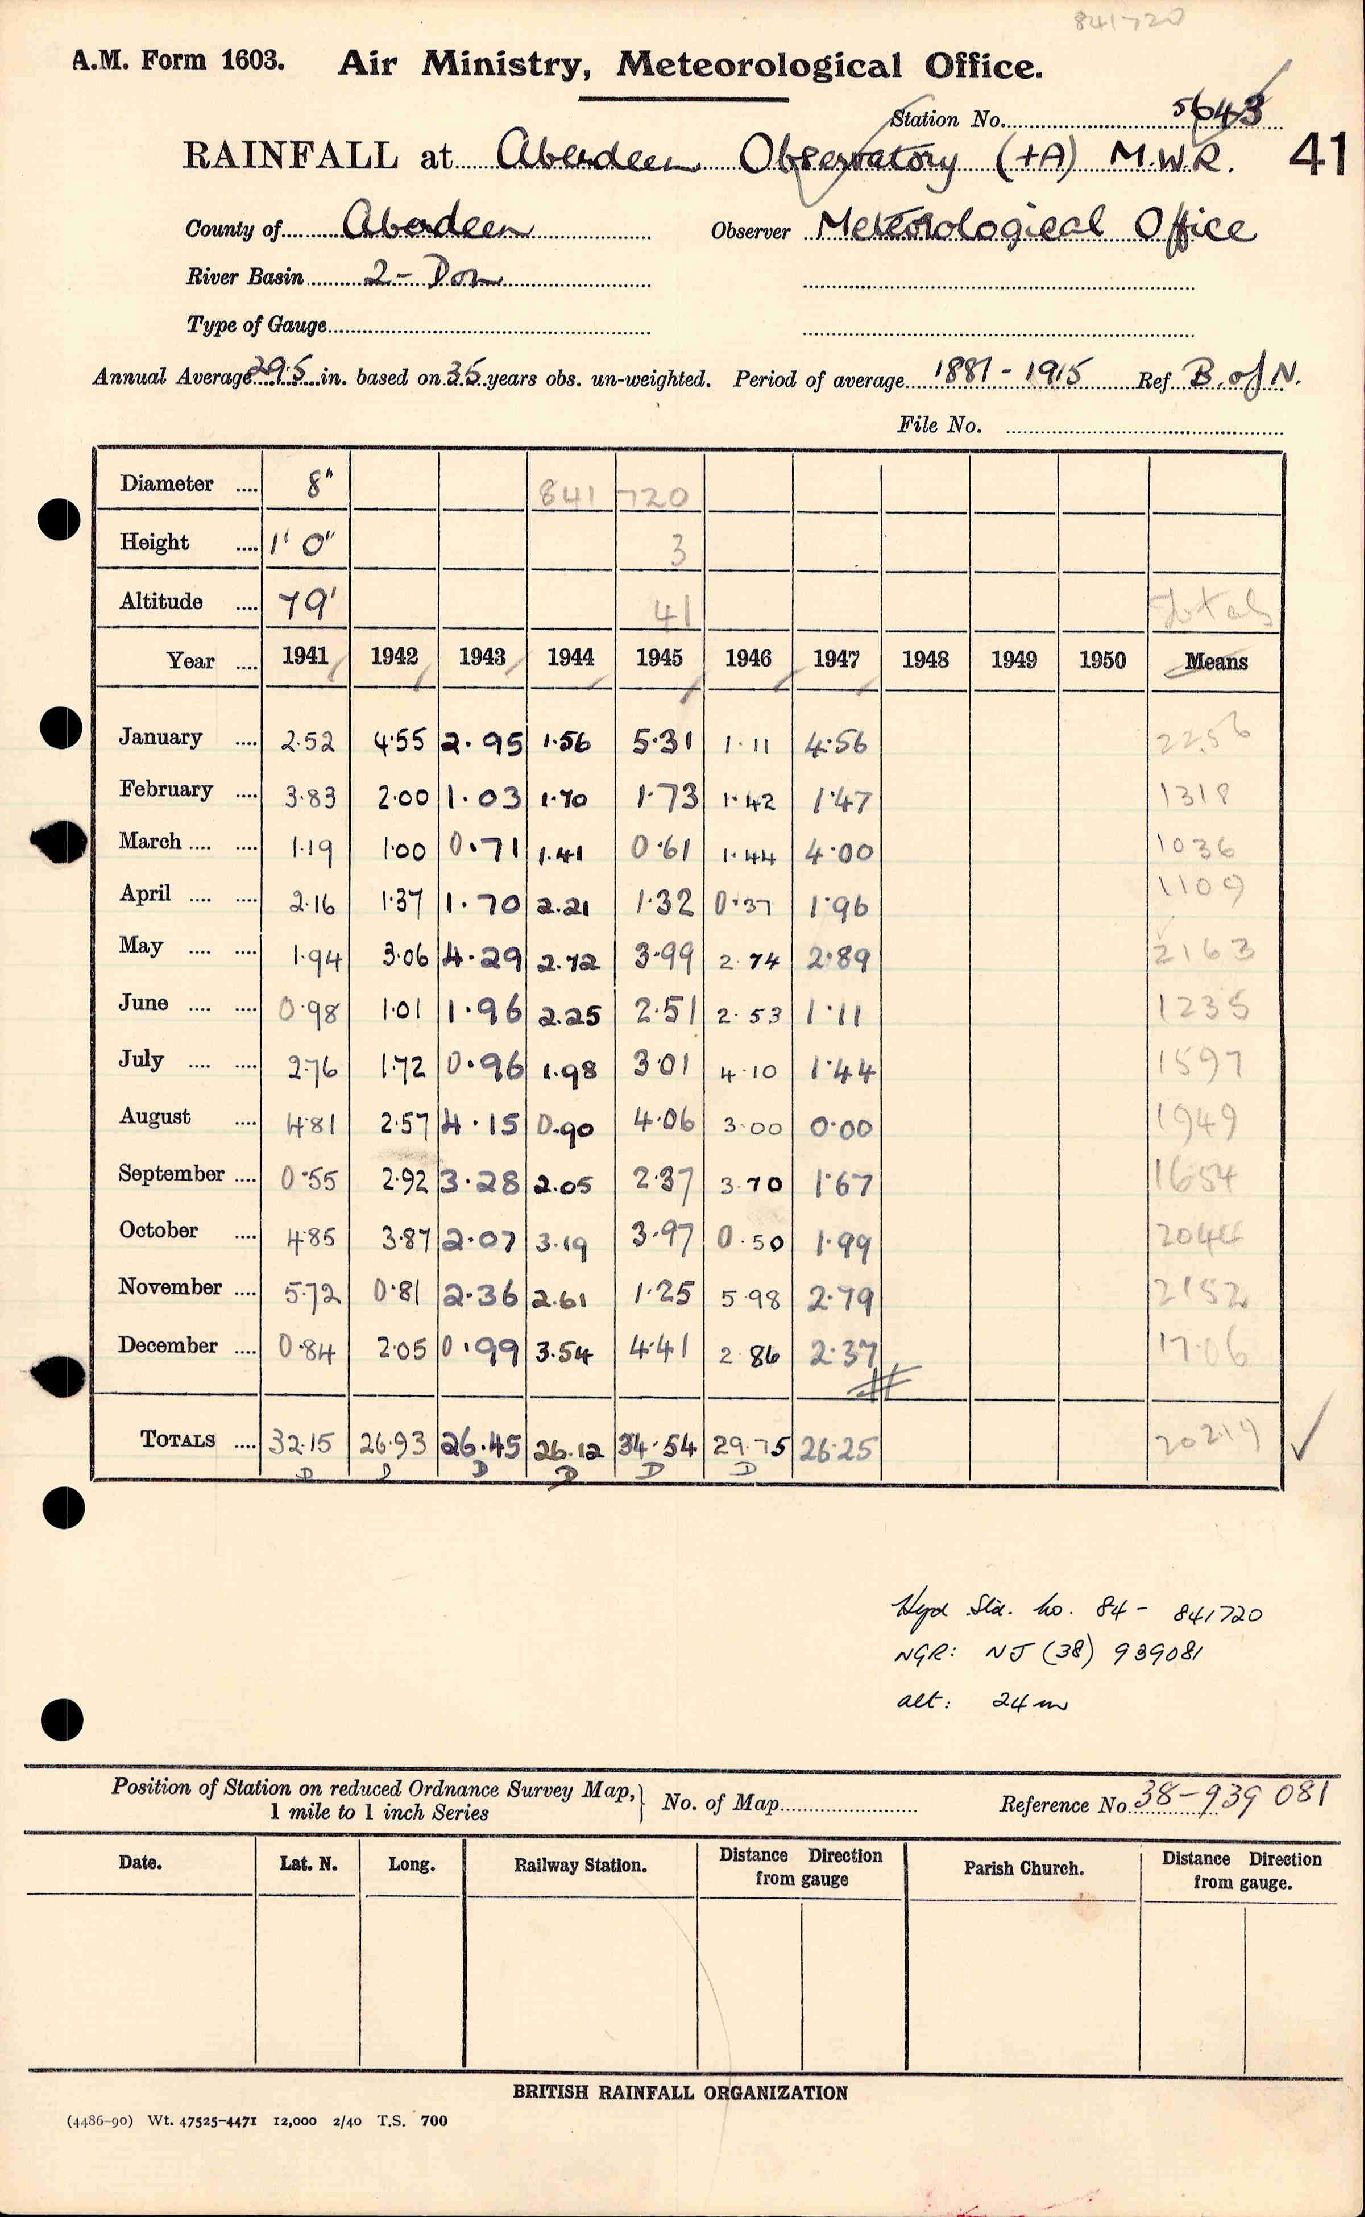 841720
A.M. Form 1603. Air Ministry, Meteorological Office.
Station No. 5643
RAINFALL at Aberdeen Observatory (+A) M.W.R. 41
County of Aberdeen Observer Meteorological Office
River Basin 2 - Don
Type of Gauge
Annual Average 29.5 in. based on 35 years obs. un-weighted. Period of average 1881 - 1915 Ref. B. of N.
File No.
Diameter .... 8" 841 720
Height .... 1' 0" 3
Altitude .... 79' 41 Totals
Year .... 1941 1942 1943 1944 1945 1946 1947 1948 1949 1950 Means
January .... 2.52 4.55 2.95 1.56 5.31 1.11 4.56 2256
February .... 3.83 2.00 1.03 1.70 1.73 1.42 1.47 1318
March .... .... 1.19 1.00 0.71 1.41 0.61 1.44 4.00 1036
April .... .... 2.16 1.37 1.70 2.21 1.32 0.37 1.96 1109
May .... .... 1.94 3.06 4.29 2.72 3.99 2.74 2.89 2163
June .... .... 0.98 1.01 1.96 2.25 2.51 2.53 1.11 1235
July .... .... 2.76 1.72 0.96 1.98 3.01 4.10 1.44 1597
August .... 4.81 2.57 4.15 0.90 4.06 3.00 0.00 1949
September .... 0.55 2.92 3.28 2.05 2.37 3.70 1.67 1654
October .... 4.85 3.87 2.07 3.19 3.97 0.50 1.99 2044
November .... 5.72 0.81 2.36 2.61 1.25 5.98 2.79 2152
December .... 0.84 2.05 0.99 3.54 4.41 2.86 2.37 1706
TOTALS .... 32.15 26.93 26.45 26.12 34.54 29.75 26.25 20219
D D D D D D
Hyd Sta. no. 84 - 841720
NGR: NJ (38) 939081
alt: 24m
Position of Station on reduced Ordnance Survey Map, No. of Map Reference No. 38-939 081
1 mile to 1 inch Series
Date. Lat. N. Long. Railway Station. Distance Direction Parish Church. Distance Direction
from gauge from gauge.
BRITISH RAINFALL ORGANIZATION
(4486-90) Wt. 47525-4471 12,000 2/40 T.S. 700